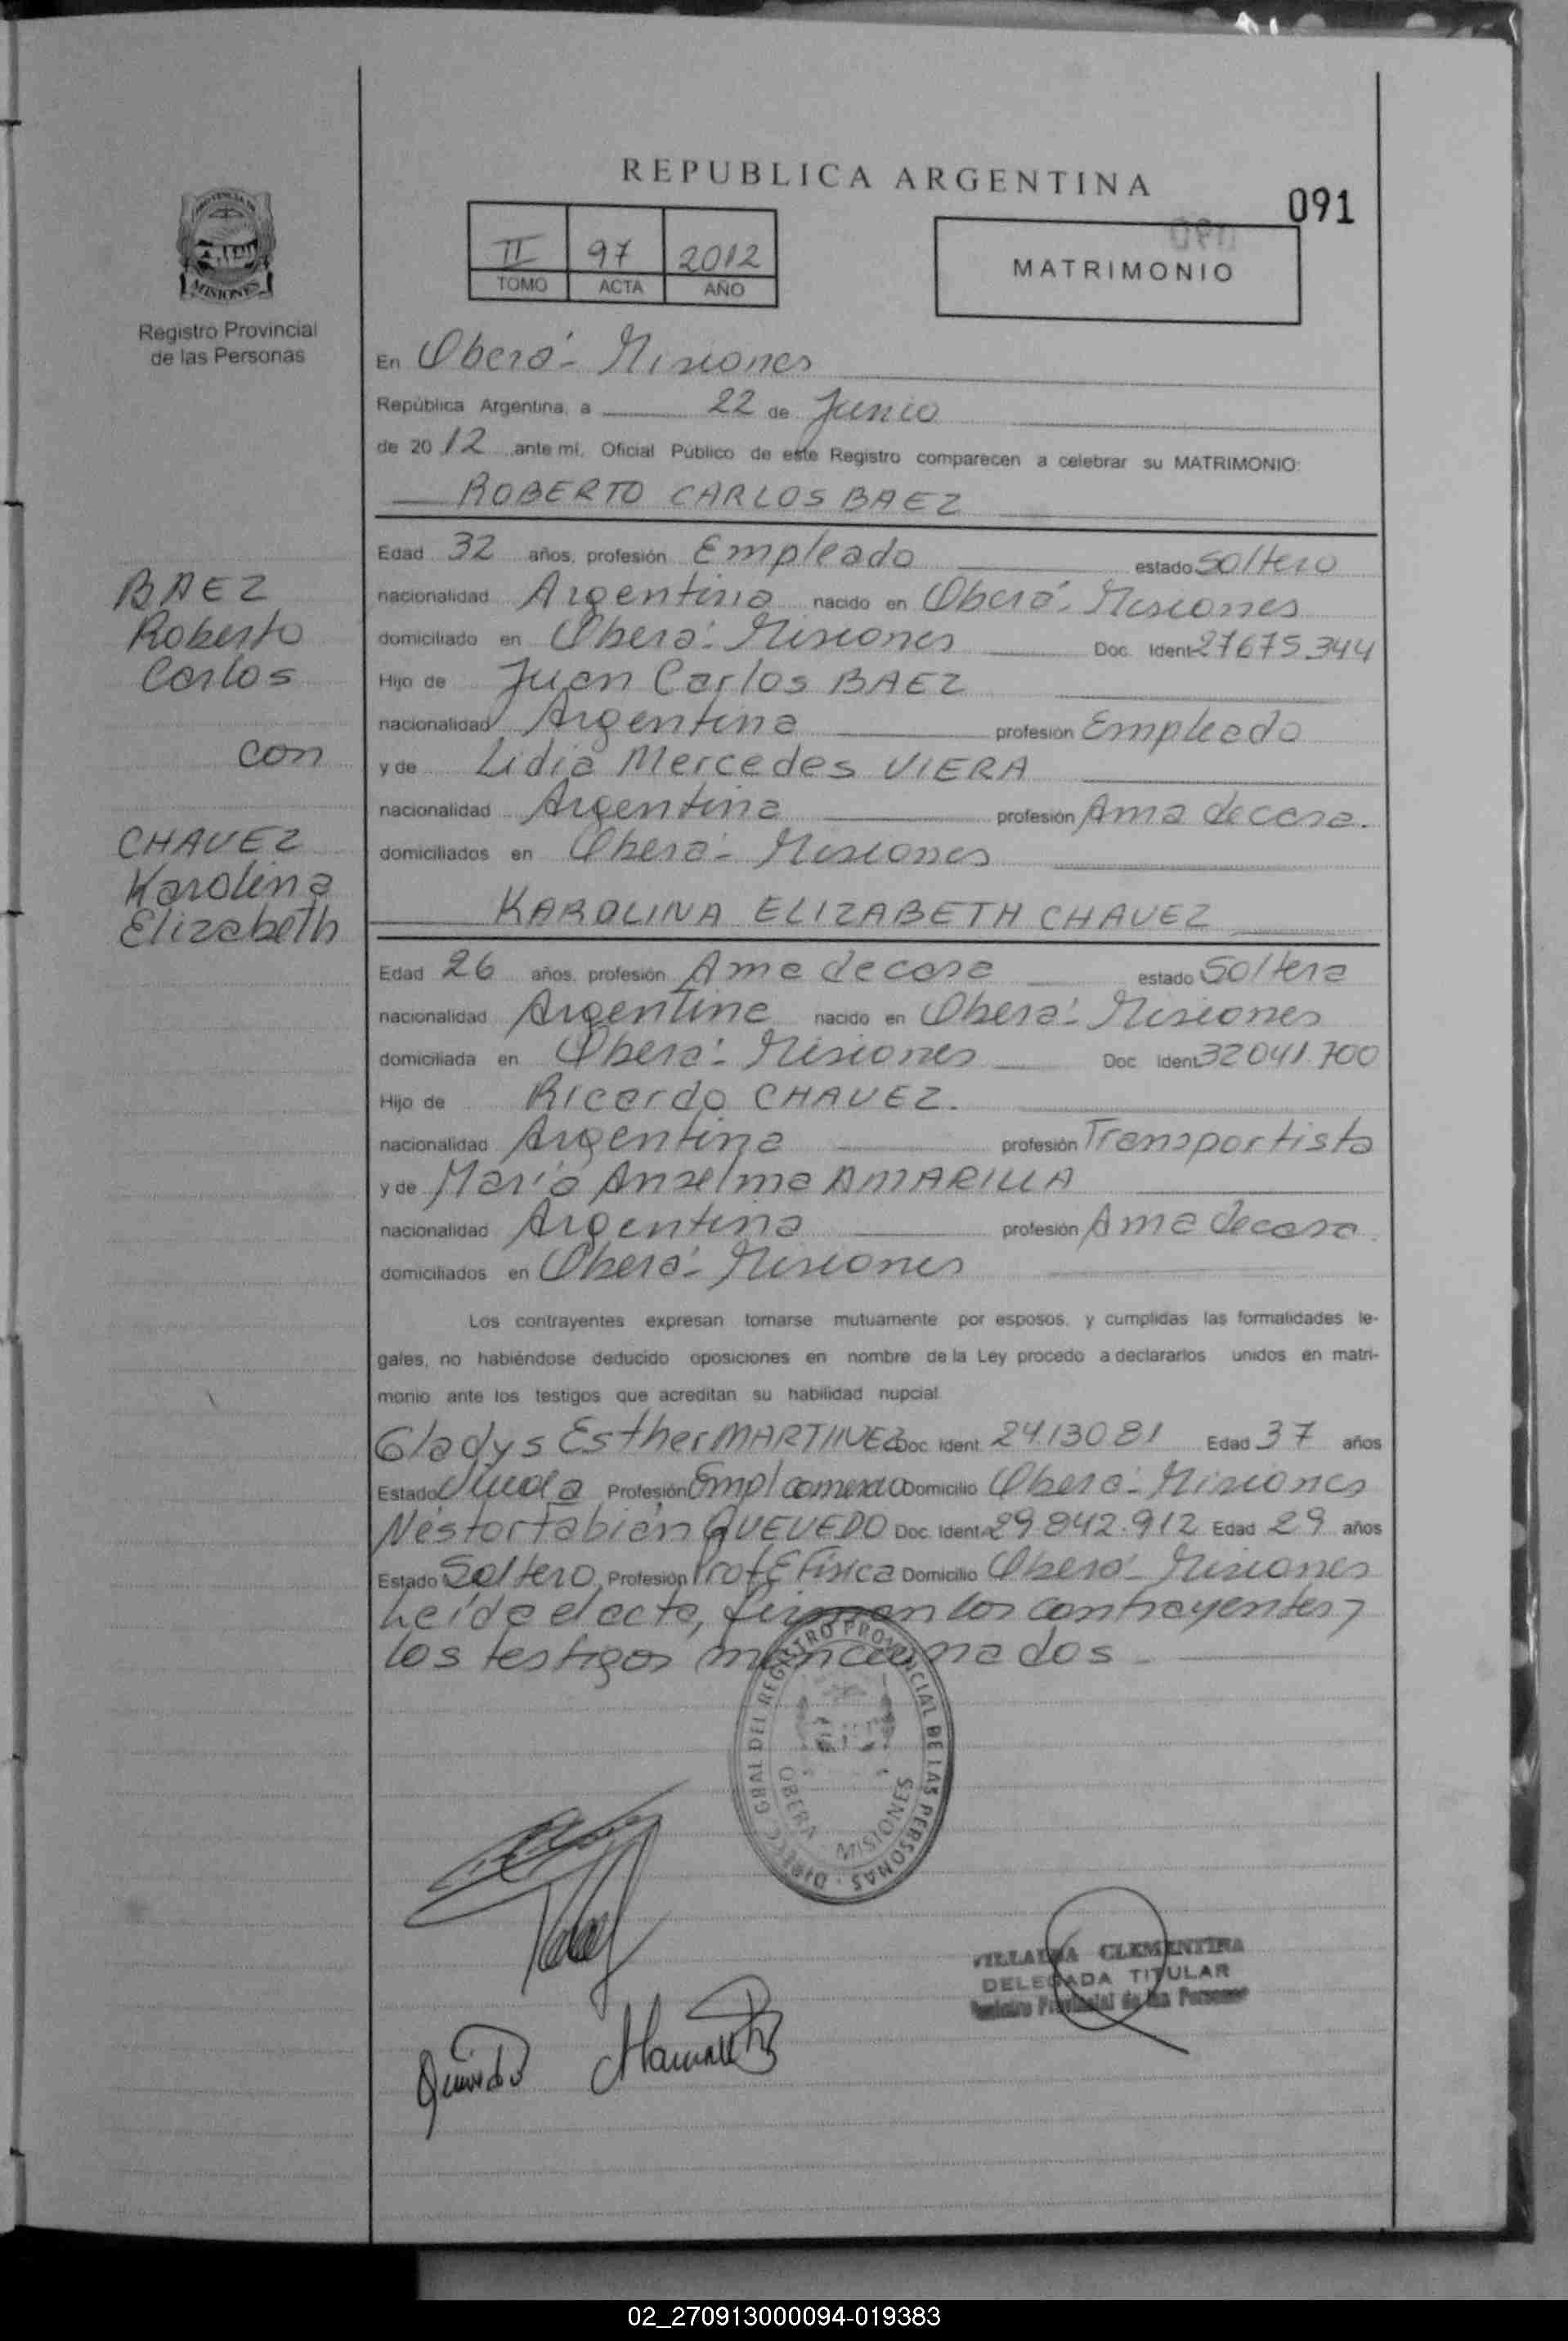 REPUBLICA ARGENTINA
091
II 97 2012
TOMO ACTA AÑO
MATRIMONIO
PROVINCIA DE
MISIONES
Registro Provincial
de las Personas
En Oberá - Misiones
República Argentina, a 22 de Junio
de 2012 ante mí, Oficial Público de este Registro comparecen a celebrar su MATRIMONIO:
ROBERTO CARLOS BAEZ
BAEZ
Roberto
Carlos
con
CHAVEZ
Karolina
Elizabeth
Edad 32 años, profesión Empleado estado Soltero
nacionalidad Argentina nacido en Oberá - Misiones
domiciliado en Oberá - Misiones Doc. Ident. 27675.344
Hijo de Juan Carlos BAEZ
nacionalidad Argentina profesión Empleado
y de Lidia Mercedes VIERA
nacionalidad Argentina profesión Ama de casa.
domiciliados en Oberá - Misiones
KAROLINA ELIZABETH CHAVEZ
Edad 26 años, profesión Ama de casa estado Soltera
nacionalidad Argentina nacido en Oberá - Misiones
domiciliada en Oberá - Misiones Doc. Ident. 32041.700
Hijo de Ricardo CHAVEZ.
nacionalidad Argentina profesión Transportista
y de María Anselma AMARILLA
nacionalidad Argentina profesión Ama de casa.
domiciliados en Oberá - Misiones
Los contrayentes expresan tomarse mutuamente por esposos, y cumplidas las formalidades le-
gales, no habiéndose deducido oposiciones en nombre de la Ley procedo a declararlos unidos en matri-
monio ante los testigos que acreditan su habilidad nupcial
Gladys Esther MARTINEZ Doc. Ident. 2413081 Edad 37 años
Estado Viuda Profesión Empl comercio Domicilio Oberá - Misiones
Néstor Fabián QUEVEDO Doc. Ident. 29.842.912 Edad 29 años
Estado Soltero Profesión Prof E Física Domicilio Oberá - Misiones
Leída el acta, firman los contrayentes y
los testigos mencionados
DIREC. GRAL DEL REGISTRO PROVINCIAL DE LAS PERSONAS
OBERA - MISIONES
VILLALBA CLEMENTINA
DELEGADA TITULAR
Registro Provincial de las Personas
02_270913000094-019383